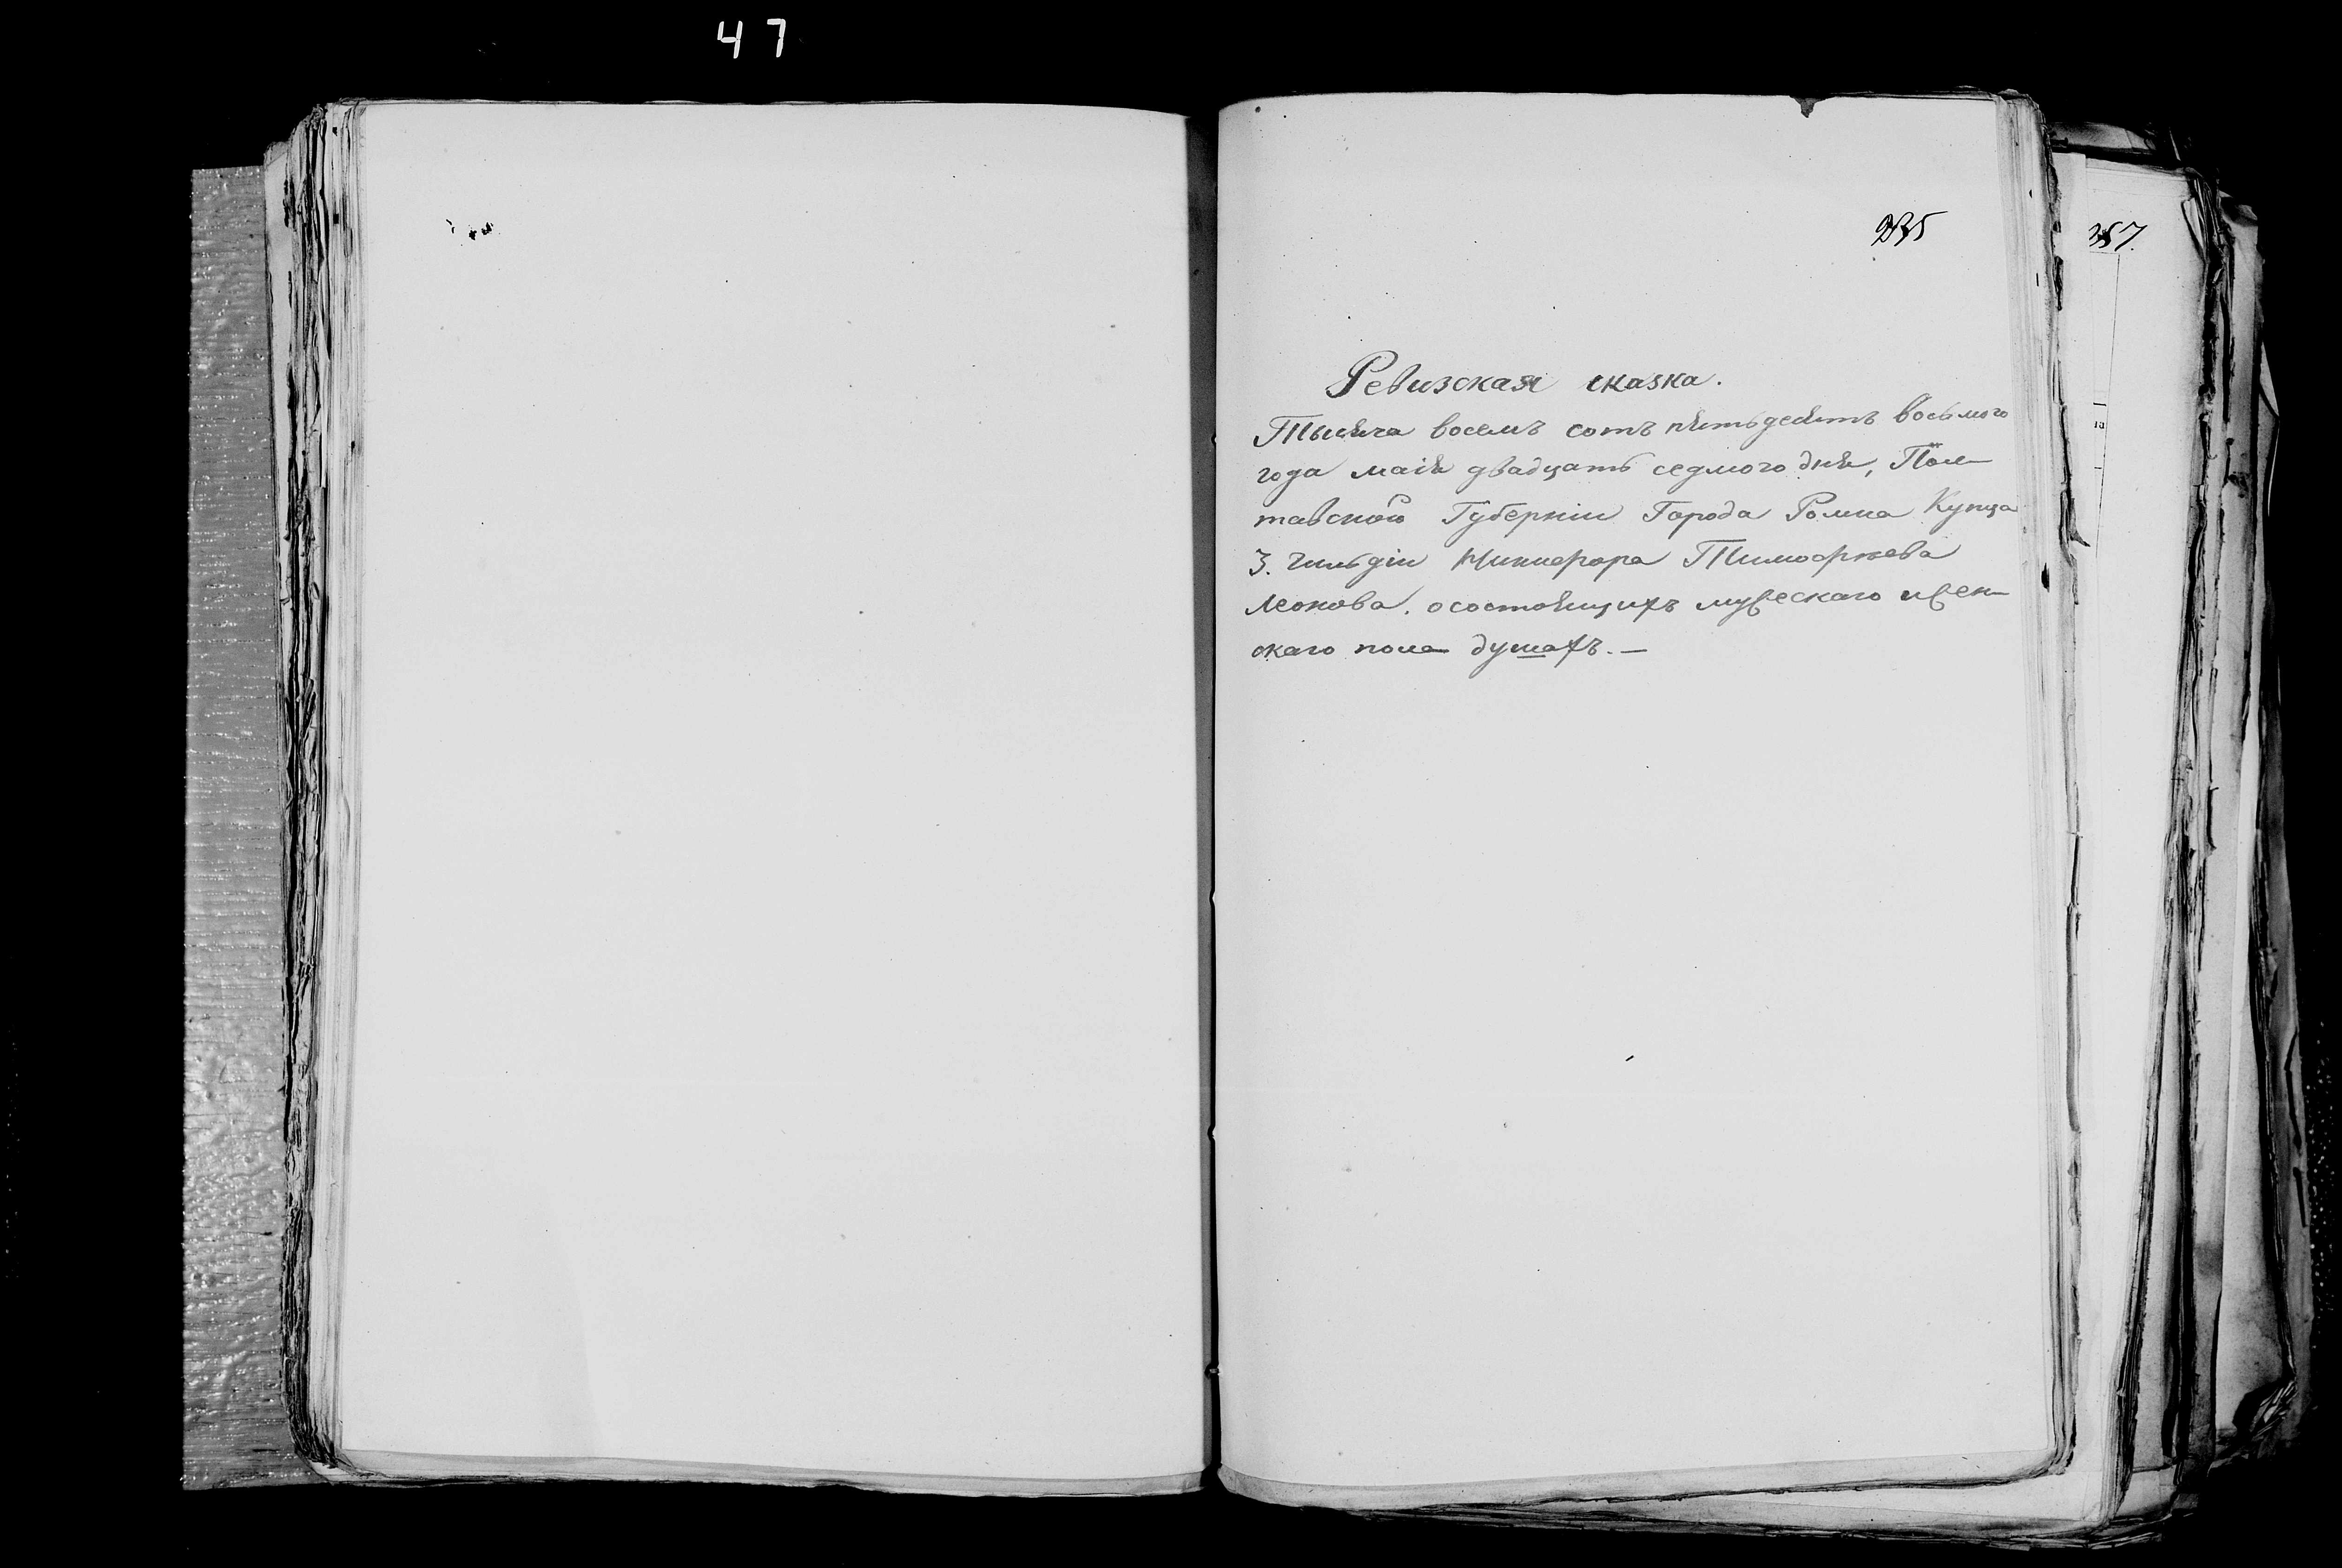 47
Ревизская сказка.
Тысяча восемъ сотъ пятьдесятъ восьмого
года маія двадцать седмого дня, Пол-
тавской Губерніи Города Ромна Купца
3. гильдіи Никифора Тимофѣева
Леонова. осостоящихъ мужескаго ижен-
скаго пола душахъ.—